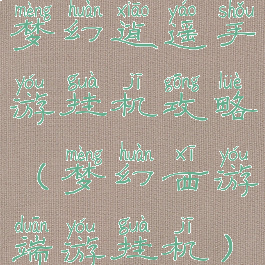 mèng huàn xiāo yáo shǒu
梦幻逍遥手
yóu guà jī gōng lüè
游挂机攻略
mèng huàn xī yóu
（梦幻西游
duān yóu guà jī
端游挂机）